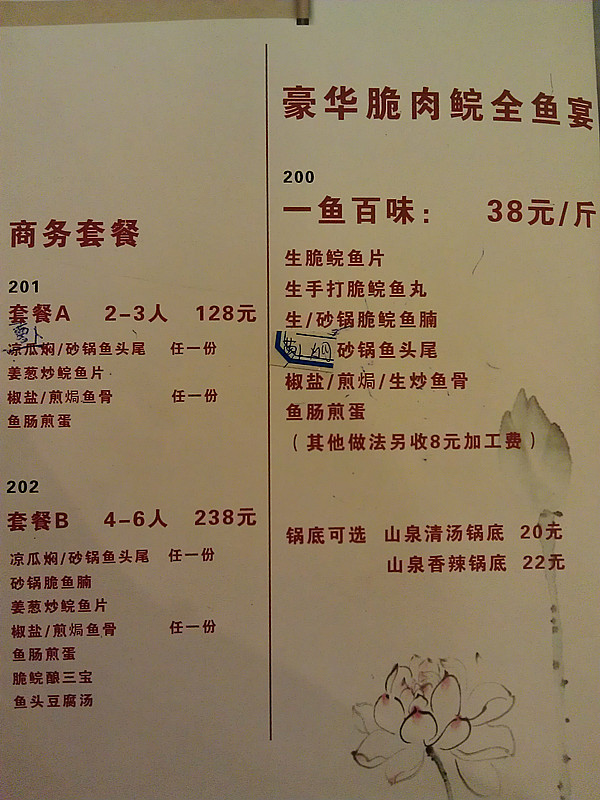 商务套餐
201
套餐A 2-3人 128元
萝卜
凉瓜焖/砂锅鱼头尾 任一份
姜葱炒鲩鱼片
椒盐/煎焗鱼骨 任一份
鱼肠煎蛋
202
套餐B 4-6人 238元
凉瓜焖/砂锅鱼头尾 任一份
砂锅脆鱼腩
姜葱炒鲩鱼片
椒盐/煎焗鱼骨 任一份
鱼肠煎蛋
脆鲩酿三宝
鱼头豆腐汤
豪华脆肉鲩全鱼宴
200
一鱼百味: 38元/斤
生脆鲩鱼片
生手打脆鲩鱼丸
生/砂锅脆鲩鱼腩
砂锅鱼头尾
椒盐/煎焗/生炒鱼骨
鱼肠煎蛋
(其他做法另收8元加工费)
锅底可选 山泉清汤锅底 20元
山泉香辣锅底 22元